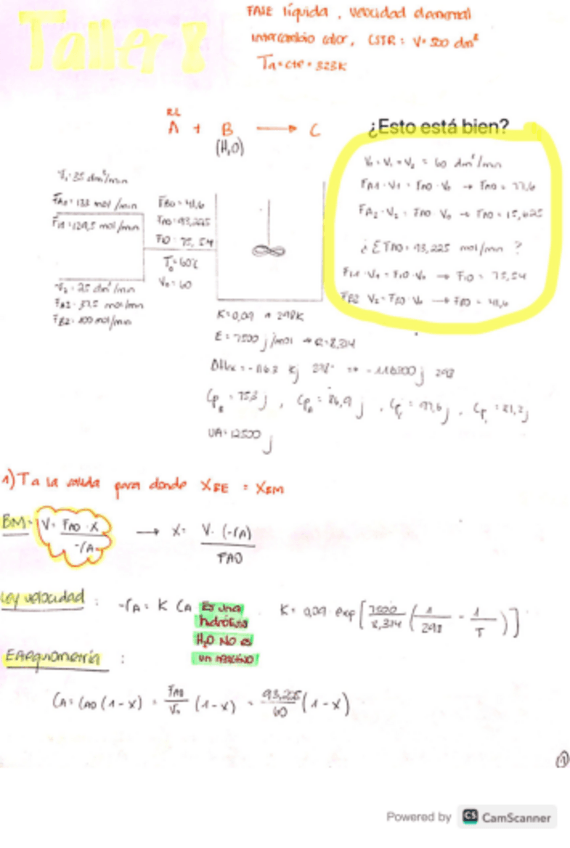 Taller 8
FASE líquida, velocidad elemental
intercambio calor, CSTR: V= 500 dm³
Ta=cte= 323K
A + B → C
(H₂O)
¿Esto está bien?
V₀= V₁ + V₂ = 60 dm³/min
FA1·V1 = FA0·V₀ → FA0 = 77,6
FA2·V2 = FA0 V₀ → FA0 = 15,625
¿ΣFA0 = 93,225 mol/min ?
V₀ → FI0 = 75,54
FB2 V2 = FB0 V₀ → FB0 = 41,6
V1= 35 dm³/min
FI1= 129,5 mol/min
V2= 25 dm³/min
FA2= 37,5 mol/min
FB2= 100 mol/min
FB0= 41,6
FA0= 93,225
FI0= 75,54
T₀= 60°C
V₀= 60
K= 0,09 a 298K
E= 7500 j/mol → R= 8,314
UA= 12500 j
1) Ta la salida para donde XBE = XBM
BM= V= FA0·X / -rA → X= V·(-rA) / FA0
Ley velocidad : -rA= K CA Es una hidrólisis H₂O NO es un reactivo! K= 0,09 exp[7500/8,314 (1/298 - 1/T)]
Estequiometría :
CA= CA0 (1-X) = FA0/V₀ (1-X) = 93,225/60 (1-X)
1
Powered by CS CamScanner